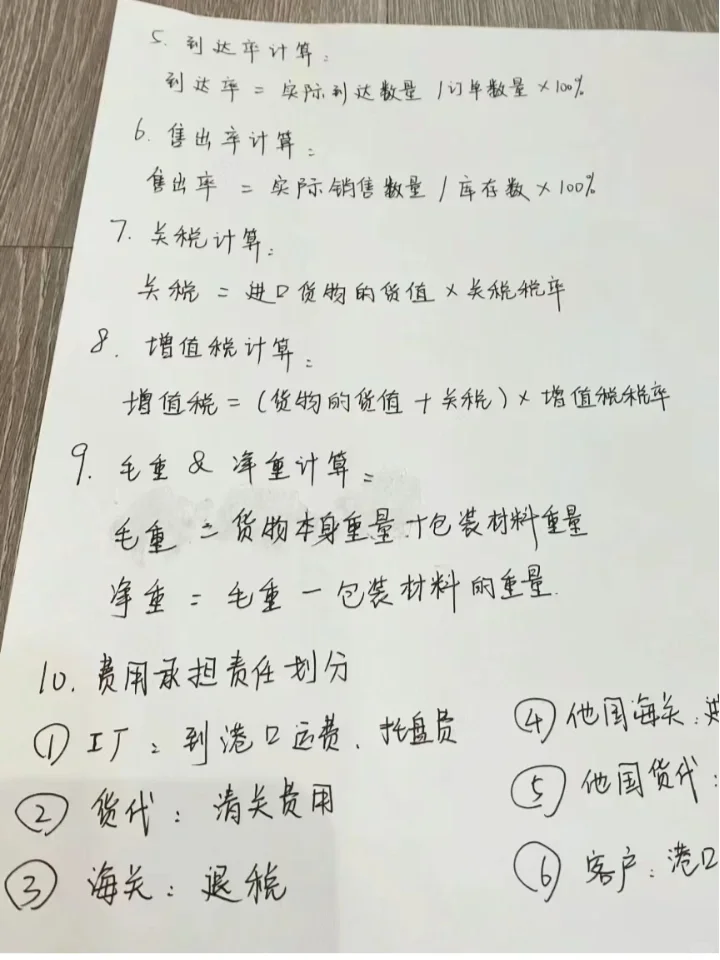 5. 到达率计算:
到达率 = 实际到达数量 / 订单数量 × 100%
6. 售出率计算:
售出率 = 实际销售数量 / 库存数 × 100%
7. 关税计算:
关税 = 进口货物的货值 × 关税税率
8. 增值税计算:
增值税 = (货物的货值 + 关税) × 增值税税率
9. 毛重 & 净重计算:
毛重 = 货物本身重量 + 包装材料重量
净重 = 毛重 - 包装材料的重量.
10. 费用承担责任划分
① 工厂: 到港口运费、托盘费
② 货代: 清关费用
③ 海关: 退税
④ 他国海关:
⑤ 他国货代:
⑥ 客户: 港口